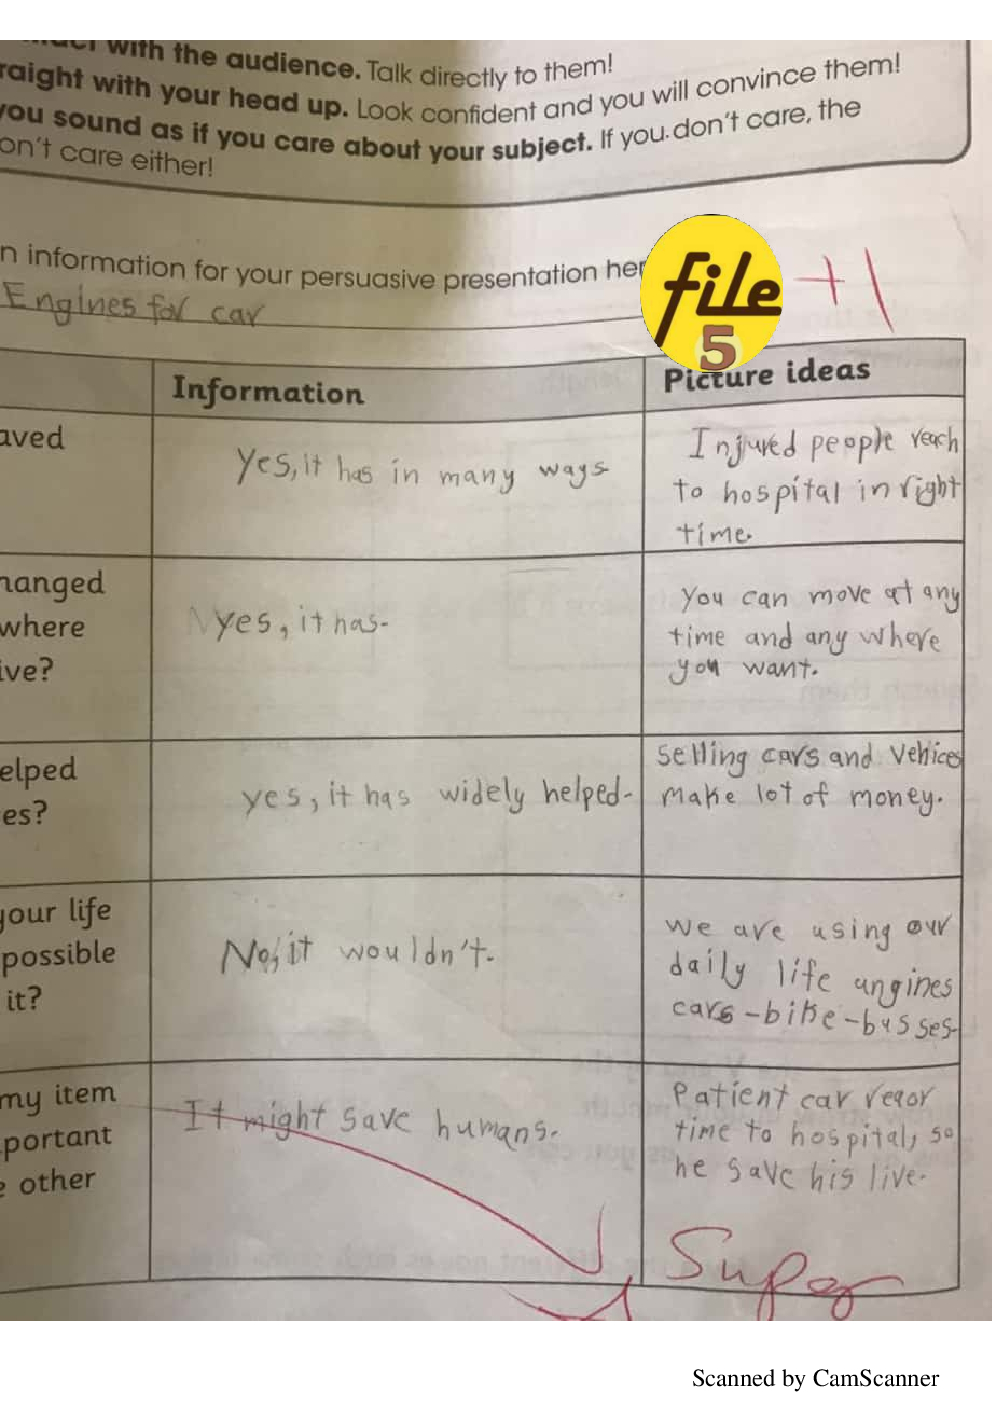 with the audience. Talk directly to them!
raight with your head up. Look confident and you will convince them!
you sound as if you care about your subject. If you don't care, the
on't care either!
n information for your persuasive presentation her
Engines for car
file
5
+1
Information
Picture ideas
aved
Yes, it has in many ways
Injured people reach
to hospital in right
time.
hanged
where
ive?
yes, it has.
You can move at any
time and any where
you want.
elped
es?
yes, it has widely helped.
selling cars and vehices
make lot of money.
your life
possible
it?
No, it wouldn't.
we are using our
daily life angines
cars-bike-busses
my item
portant
e other
It might save humans.
Patient car
time to hospital, so
he save his live.
Super
Scanned by CamScanner